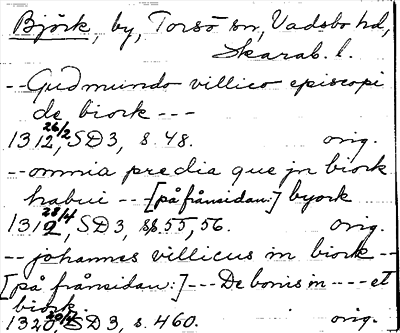 Björk, by, Torsö sn, Vadsbo hd,
Skarab. l.
-- Gudmundo villico episcopi
de biork ---
1312 26/2, SD3, s. 48. orig.
-- omnia predia que jn biork
habui -- [på frånsidan:] byork
1312 28/4, SD3, s. 55, 56. orig.
-- johannes villicus in biork --
[på frånsidan:] --- De bonis in ---- et
biork.
1320 20/4, SD3, s. 460. orig.